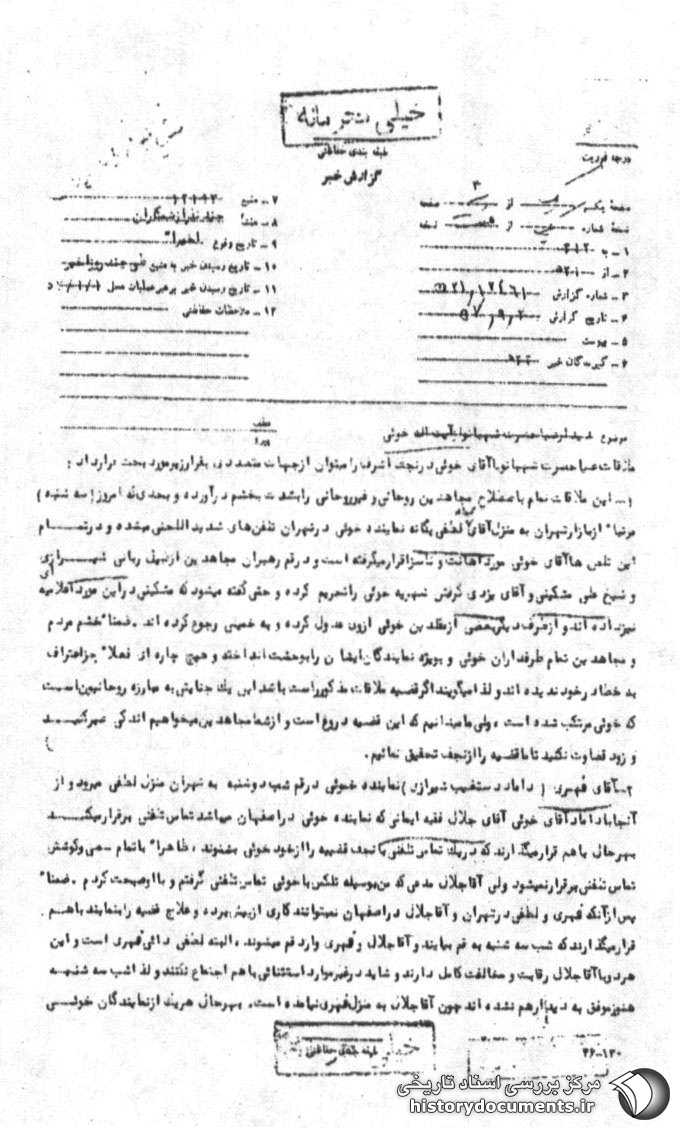 خیلی محرمانه
طبقه بندی حفاظتی
گزارش خبر
درجه فوریت
صفحه یکم از ۳ صفحه
نسخه شماره از نسخه
۱ – به ۳۱۲
۲ – از
۳ – شماره گزارش
۴ – تاریخ گزارش
۵ – پیوست
۶ – گیرندگان خبر
۷ – منبع
۸ – منشاء چند نفر از
۹ – تاریخ وقوع اخیرا"
۱۰ – تاریخ رسیدن خبر به منبع طی چند روز اخیر
۱۱ – تاریخ رسیدن خبر برهبر عملیات محل
۱۲ – ملاحظات حفاظتی
عطف
پیرو
موضوع دیدار علیاحضرت شهبانو با آیت اله خوئی
ملاقات علیاحضرت شهبانو با آقای خوئی در نجف اشرف را میتوان از جهات متعددی بقرار زیر مورد بحث قرار داد :
۱ – این ملاقات تمام باصطلاح مجاهدین روحانی و غیر روحانی را بشدت بخشم درآورده و بحدی که امروز ( سه شنبه )
مرتبا" از بازار تهران به منزل آقای لطفی یگانه نماینده خوئی در تهران تلفن های شدید اللحنی میشده و در تمام
این تلفن ها آقای خوئی مورد اهانت و ناسزا قرار میگرفته است و در قم رهبران مجاهدین از قبیل ربانی شیرازی
و شیخ علی مشکینی و آقای یزدی گرفتن شهریه خوئی را تحریم کرده و حتی گفته میشود که مشکینی در این مورد اعلامیه ای
نیز داده اند و از طرف دیگر بعضی از مقلدین خوئی ازون عدول کرده و به خمینی رجوع کرده اند . ضمنا" خشم مردم
و مجاهدین تمام طرفداران خوئی و بویژه نمایندگان ایشان را بوحشت انداخته و هیچ چاره ای فعلا" جز اعتراف
به خطا در خود ندیده اند و لذا میگویند اگر قضیه ملاقات مذکور راست باشد این یک جنایتی به مبارزه روحانیین است
که خوئی مرتکب شده است ، ولی ما میدانیم که این قضیه دروغ است و از شما مجاهدین میخواهیم اندکی صبر کنید
و زود قضاوت نکنید تا ما قضیه را از نجف تحقیق نمائیم .
۲ – آقای قهری ( داماد دستغیب شیرازی ) نماینده خوئی در قم شب دوشنبه به تهران منزل لطفی میرود و از
آنجا با داماد آقای خوئی آقای جلال فقیه ایمانی که نماینده خوئی در اصفهان میباشد تماس تلفنی برقرار میکند
بهرحال با هم قرار میگذارند که در یک تماس تلفنی با نجف قضیه را از خود خوئی بشنوند ، ظاهرا" با تمام سعی و کوشش
تماس تلفنی برقرار نمیشود ولی آقا جلال مدعی که من بوسیله تلکس با خوئی تماس تلفنی گرفتم و با او صحبت کردم . ضمنا"
پس از آنکه قهری و لطفی در تهران و آقا جلال در اصفهان نمیتوانند کاری از پیش برده و علاج قضیه را بنمایند با هم
قرار میگذارند که شب سه شنبه به قم بیایند و آقا جلال و قهری وارد قم میشوند ، البته لطفی دائی قهری است و این
هر دو با آقا جلال رقابت و مخالفت کامل دارند و شاید در غیر موارد استثنائی با هم اجتماع نکنند و لذا شب سه شنبه
هنوز موفق به دیدار هم نشده اند چون آقا جلال به منزل قهری نیامده است . بهرحال هریک از نمایندگان خوئی
۳۶–۱۳۰
خیلی
طبقه بندی حفاظتی
مرکز بررسی اسناد تاریخی
historydocuments.ir